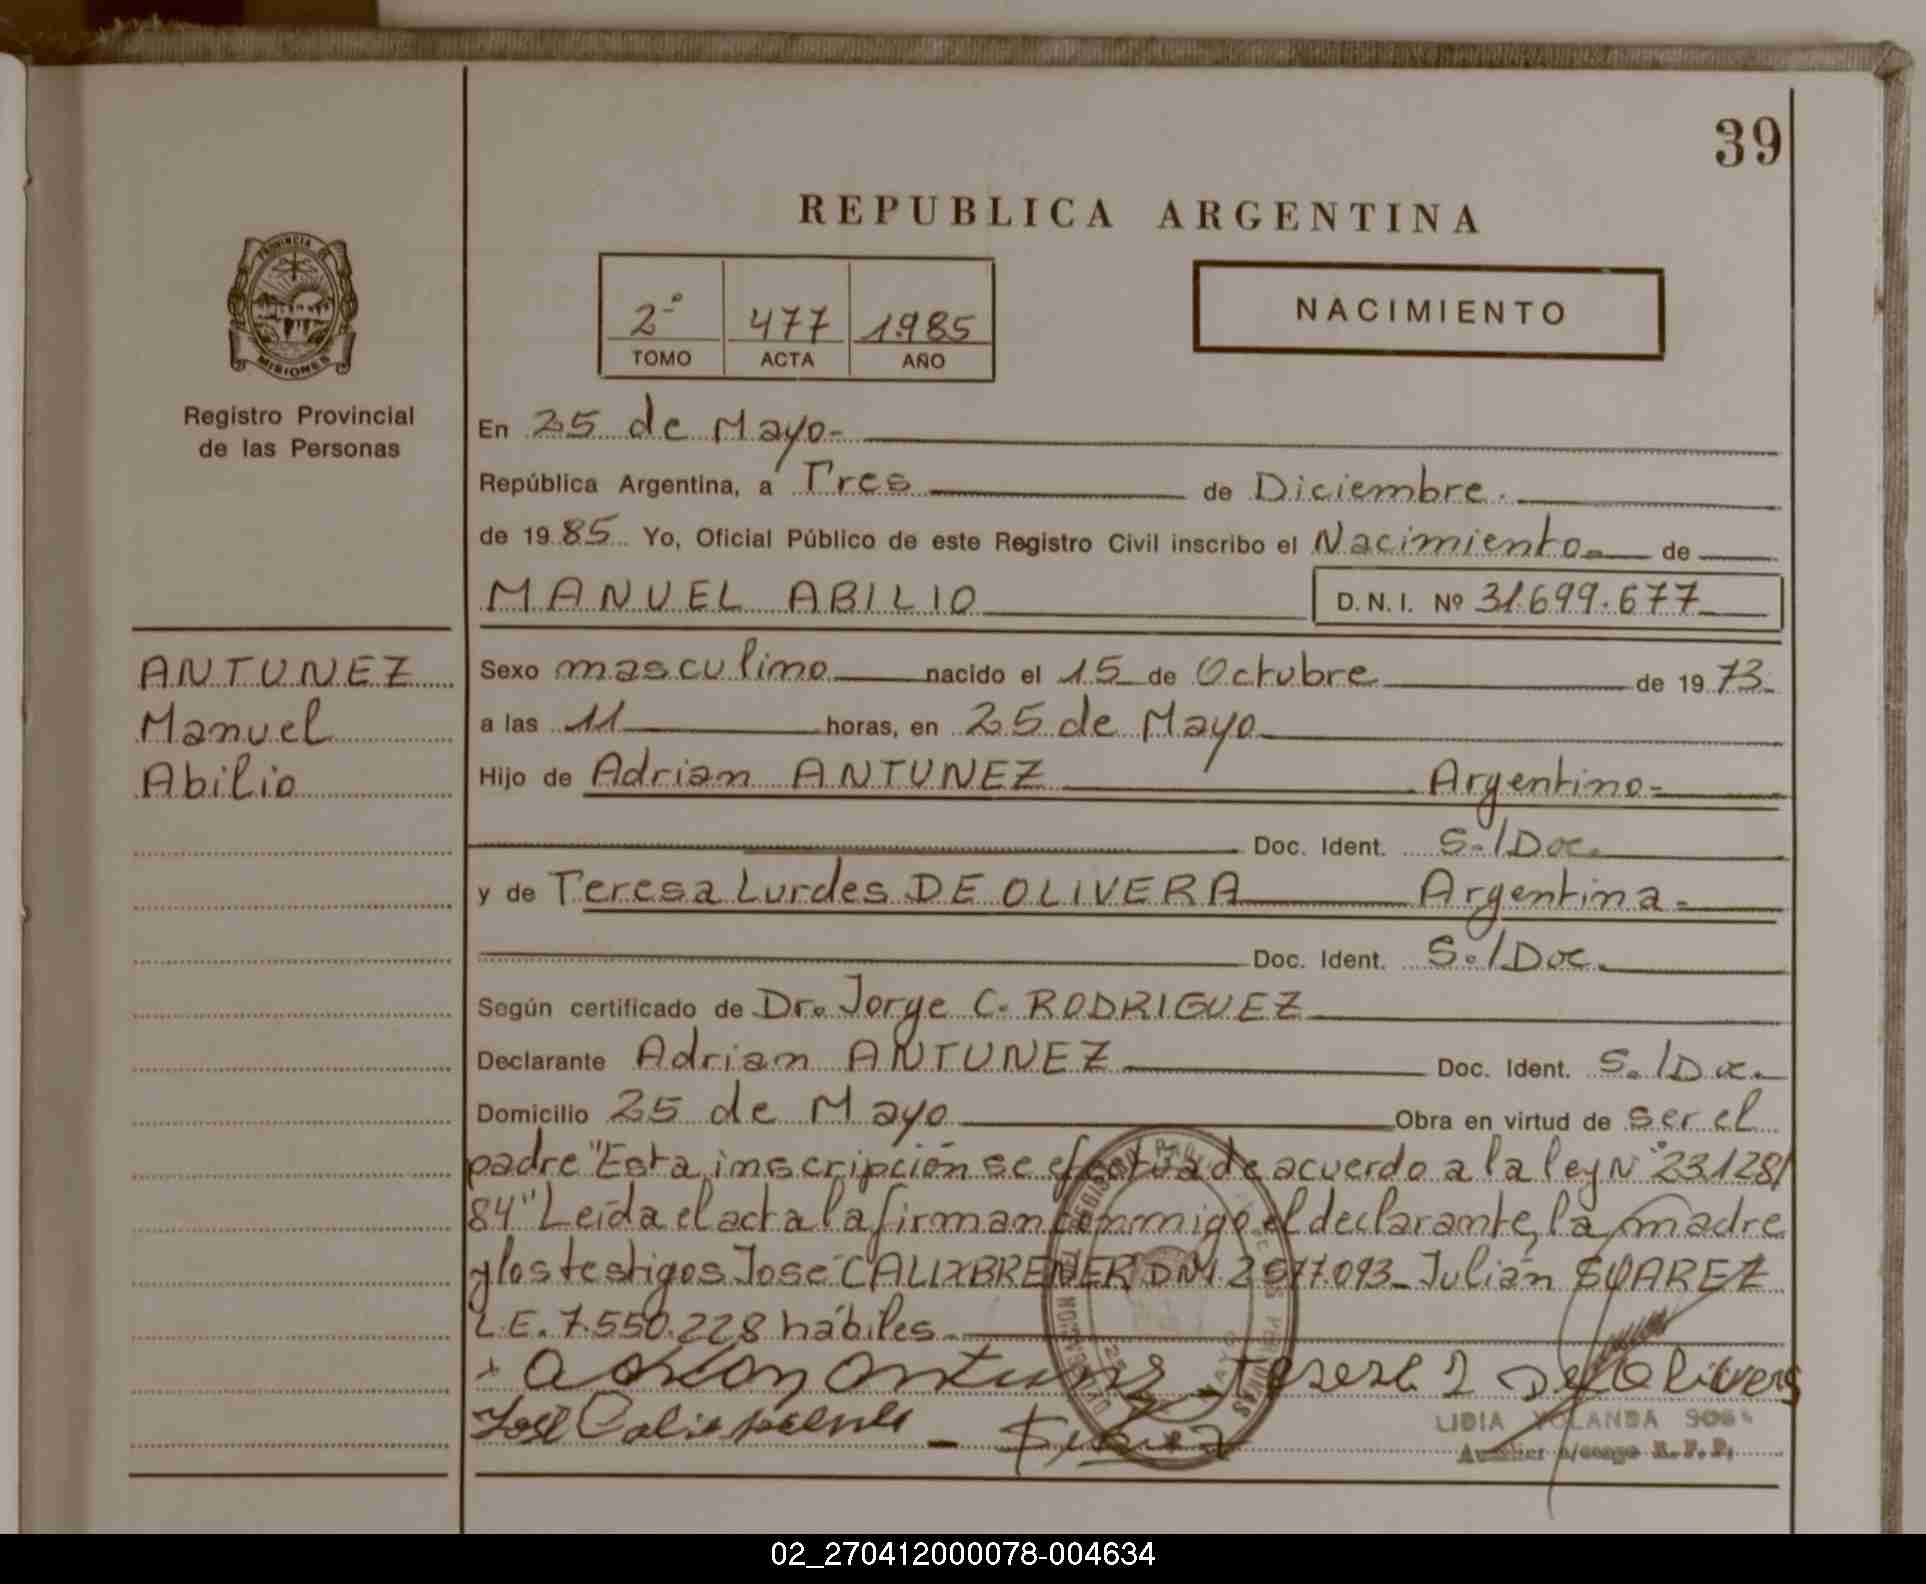 39
REPUBLICA ARGENTINA
PROVINCIA DE
MISIONES
Registro Provincial
de las Personas
2º 477 1985
TOMO ACTA AÑO
NACIMIENTO
En 25 de Mayo-
República Argentina, a Tres de Diciembre.
de 1985 Yo, Oficial Público de este Registro Civil inscribo el Nacimiento de
MANUEL ABILIO D.N.I. Nº 31.699.677
ANTUNEZ
Manuel
Abilio
Sexo masculino nacido el 15 de Octubre de 1973
a las 11 horas, en 25 de Mayo
Hijo de Adrian ANTUNEZ Argentino-
Doc. Ident. S./Doc.
y de Teresa Lurdes DE OLIVERA Argentina-
Doc. Ident. S./Doc.
Según certificado de Dr. Jorge C. RODRIGUEZ
Declarante Adrian ANTUNEZ Doc. Ident. S./Doc.
Domicilio 25 de Mayo Obra en virtud de ser el
padre "Esta inscripción se efectúa de acuerdo a la ley Nº 23.128/
84" Leída el acta la firman conmigo el declarante, la madre
y los testigos José CALIXBRENER DNI 2577.093- Julián SUAREZ
L.E. 7.550.228 hábiles-
LIDIA YOLANDA SOSA
Auxiliar a/cargo R.P.P.
02_270412000078-004634